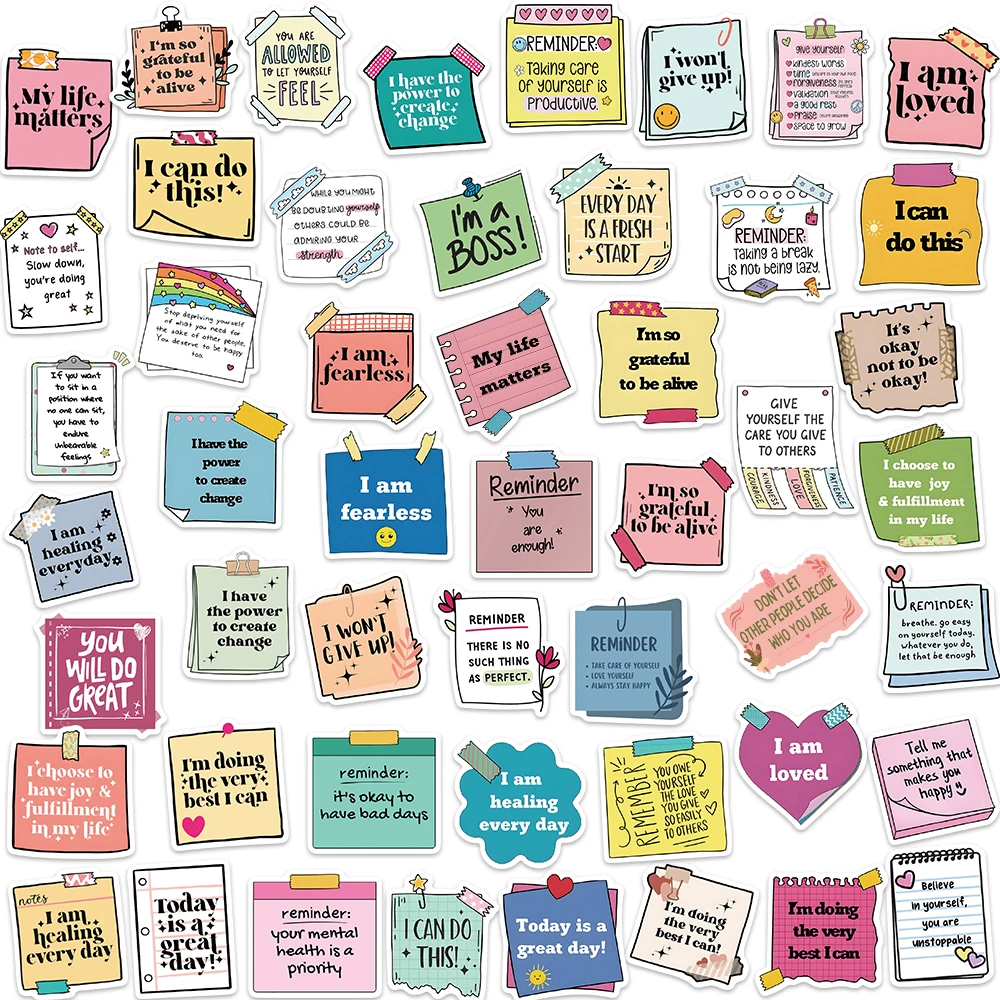 My life
matters
I'm so
grateful
to be
alive
YOU ARE
ALLOWED
TO LET YOURSELF
FEEL
I have the
power to
create
change
REMINDER:
Taking care
of yourself is
PRODUCTIVE.
I won't
give up!
give yourself
kindest words
time
forgiveness
validation
a good rest
praise
space to grow
I am
loved
I can do
this!
WHILE YOU MIGHT
BE DOUBTING yourself
OTHERS COULD BE
ADMIRING YOUR
strength
I'm a
BOSS!
EVERY DAY
IS A FRESH
START
REMINDER:
Taking a break
is not being lazy.
I can
do this
Note to self...
Slow down,
you're doing
great
Stop depriving yourself
of what you need for
the sake of other people.
You deserve to be happy
too.
I am
fearless
My life
matters
I'm so
grateful
to be alive
It's
okay
not to be
okay!
If you want
to sit in a
position where
no one can sit,
you have to
endure
unbearable
feelings
I have the
power
to create
change
I am
fearless
Reminder
You
are
enough!
I'm so
grateful
to be alive
GIVE
YOURSELF THE
CARE YOU GIVE
TO OTHERS
COURAGE
KINDNESS
LOVE
FORGIVENESS
PATIENCE
I choose to
have joy
& fulfillment
in my life
I am
healing
everyday
I have
the power
to create
change
I WON'T
GIVE UP!
REMINDER
THERE IS NO
SUCH THING
AS PERFECT.
REMINDER
• TAKE CARE OF YOURSELF
• LOVE YOURSELF
• ALWAYS STAY HAPPY
DON'T LET
OTHER PEOPLE DECIDE
WHO YOU ARE
REMINDER:
breathe. go easy
on yourself today.
whatever you do,
let that be enough
YOU
WILL DO
GREAT
I choose to
have joy &
fulfillment
in my life
I'm doing
the very
best I can
reminder:
it's okay to
have bad days
I am
healing
every day
REMEMBER
YOU OWE
YOURSELF
THE LOVE
YOU GIVE
SO EASILY
TO OTHERS
I am
loved
Tell me
something that
makes you
happy
notes
I am
healing
every day
Today
is a
great
day!
reminder:
your mental
health is a
priority
I CAN DO
THIS!
Today is a
great day!
I'm doing
the very
best I can!
I'm doing
the very
best I can
Believe
in yourself,
you are
unstoppable